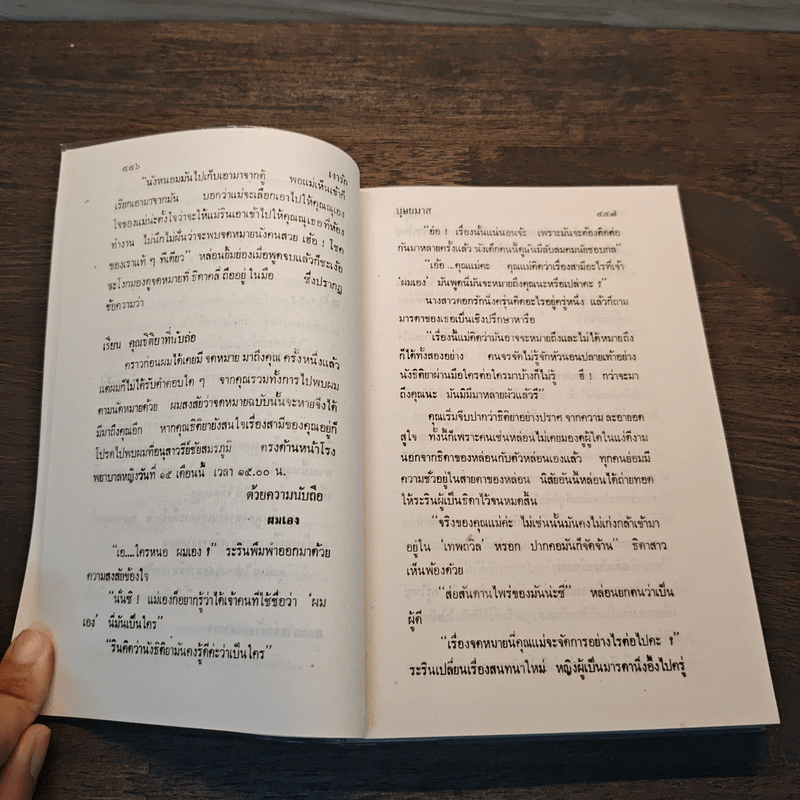 ๔๔๖
เงารัก
“นังหนอมมันไปเก็บเอามาจากตู้ พอแม่เห็นเข้าก็
เรียกเอามาจากมัน บอกว่าแม่จะเลือกเอาไปให้คุณณุเอง
ใจของแม่น่ะตั้งใจว่าจะให้แม่รินเอาเข้าไปให้คุณณุเธอที่ห้อง
ทำงาน ไม่นึกไม่ฝันว่าจะพบจดหมายนังคนสวย เฮ้อ ! โชค
ของเราแท้ ๆ ทีเดียว” หล่อนยิ้มย่องเมื่อพูดจบแล้วก็ชะเง้อ
ชะโงกมองดูจดหมายที่ ธิดาคลี่ ถืออยู่ ในมือ ซึ่งปรากฏ
ข้อความว่า
เรียน คุณธิติยาที่นับถือ
คราวก่อนผมได้เคยมี จดหมาย มาถึงคุณ ครั้งหนึ่งแล้ว
แต่ผมก็ไม่ได้รับคำตอบใด ๆ จากคุณรวมทั้งการไปพบผม
ตามนัดหมายด้วย ผมสงสัยว่าจดหมายฉบับนั้นจะหายจึงได้
มีมาถึงคุณอีก หากคุณธิติยายังสนใจเรื่องสามีของคุณอยู่ก็
โปรดไปพบผมที่อนุสาวรีย์ชัยสมรภูมิ ตรงด้านหน้าโรง
พยาบาลหญิงวันที่ ๑๕ เดือนนี้ เวลา ๑๕.๐๐ น.
ด้วยความนับถือ
ผมเอง
“เอ....ใครหนอ ผมเอง ?” ระรินพึมพำออกมาด้วย
ความสงสัยข้องใจ
“นั่นซิ ! แม่เองก็อยากรู้ว่าได้เจ้าคนที่ใช้ชื่อว่า ‘ผม
เอง’ นี่มันเป็นใคร”
“รินคิดว่านังธิติย่ามันคงรู้ดีค่ะว่าเป็นใคร”
บุษยมาส
๔๔๗
“อ๋อ ! เรื่องนั้นแน่นอนจ้ะ เพราะมันจะต้องติดต่อ
กันมาหลายครั้งแล้ว นังเด็กคนนี้คุณมันมีลับลมคมนัยชอบกล”
“เอ้อ ...คุณแม่คะ คุณแม่คิดว่าเรื่องสามีอะไรที่เจ้า
‘ผมเอง’ มันพูดนี่มันจะหมายถึงคุณณะหรือเปล่าคะ ?”
นางสาวดอกรักนิ่งครุ่นคิดอะไรอยู่ครู่หนึ่ง แล้วก็ถาม
มารดาของเธอเป็นเชิงปรึกษาหารือ
“เรื่องนี้แม่คิดว่ามันอาจจะหมายถึงและไม่ได้หมายถึง
ก็ได้ทั้งสองอย่าง คนจรจัดไม่รู้จักหัวนอนปลายเท้าอย่าง
นังธิติยาผ่านมือใครต่อใครมาบ้างก็ไม่รู้ ฮึ ! กว่าจะมา
ถึงคุณนะ มันมิมีมาหลายผัวแล้วรึ”
คุณเริ่มจีบปากว่าธิติยาอย่างปราศ จากความ ละอายอด
สูใจ ทั้งนี้ก็เพราะคนเช่นหล่อนไม่เคยมองดูผู้ใดในแง่ดีงาม
นอกจากธิดาของหล่อนกับตัวหล่อนเองแล้ว ทุกคนย่อมมี
ความชั่วอยู่ในสายตาของหล่อน นิสัยอันนี้หล่อนได้ถ่ายทอด
ให้ระรินผู้เป็นธิดาไว้จนหมดสิ้น
“จริงของคุณแม่ค่ะ ไม่เช่นนั้นมันคงไม่เก่งกล้าเข้ามา
อยู่ใน ‘เทพถวิล’ หรอก ปากคอมันก็จัดจ้าน” ธิดาสาว
เห็นพ้องด้วย
“ส่อสันดานไพร่ของมันน่ะซี” หล่อนยกตนว่าเป็น
ผู้ดี
“เรื่องจดหมายนี่คุณแม่จะจัดการอย่างไรต่อไปคะ ?”
ระรินเปลี่ยนเรื่องสนทนาใหม่ หญิงผู้เป็นมารดานิ่งอึ้งไปครู่